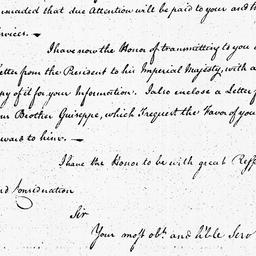 suaded that due Attention will be paid to your and
vices. —
I have now the Honor of transmitting to you
Letter from the President to his Imperial Majesty, with a
py of it for your Information. I also enclose a Letter f
ur Brother Guiseppe, which I request the Favor of you
ward to him. —
I have the Honor to be with great Resp
nd Consideration
Sir
Your most obt. and h'ble Serv